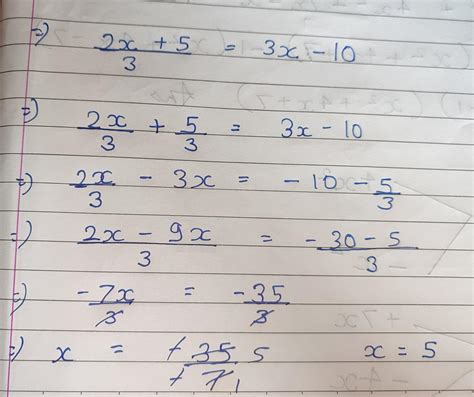 ⇒) (2x + 5)/3 = 3x - 10
⇒) 2x/3 + 5/3 = 3x - 10
⇒) 2x/3 - 3x = -10 - 5/3
⇒) (2x - 9x)/3 = (-30 - 5)/3
⇒) -7x/3 = -35/3
⇒) x = +35/+7 5 1 x = 5